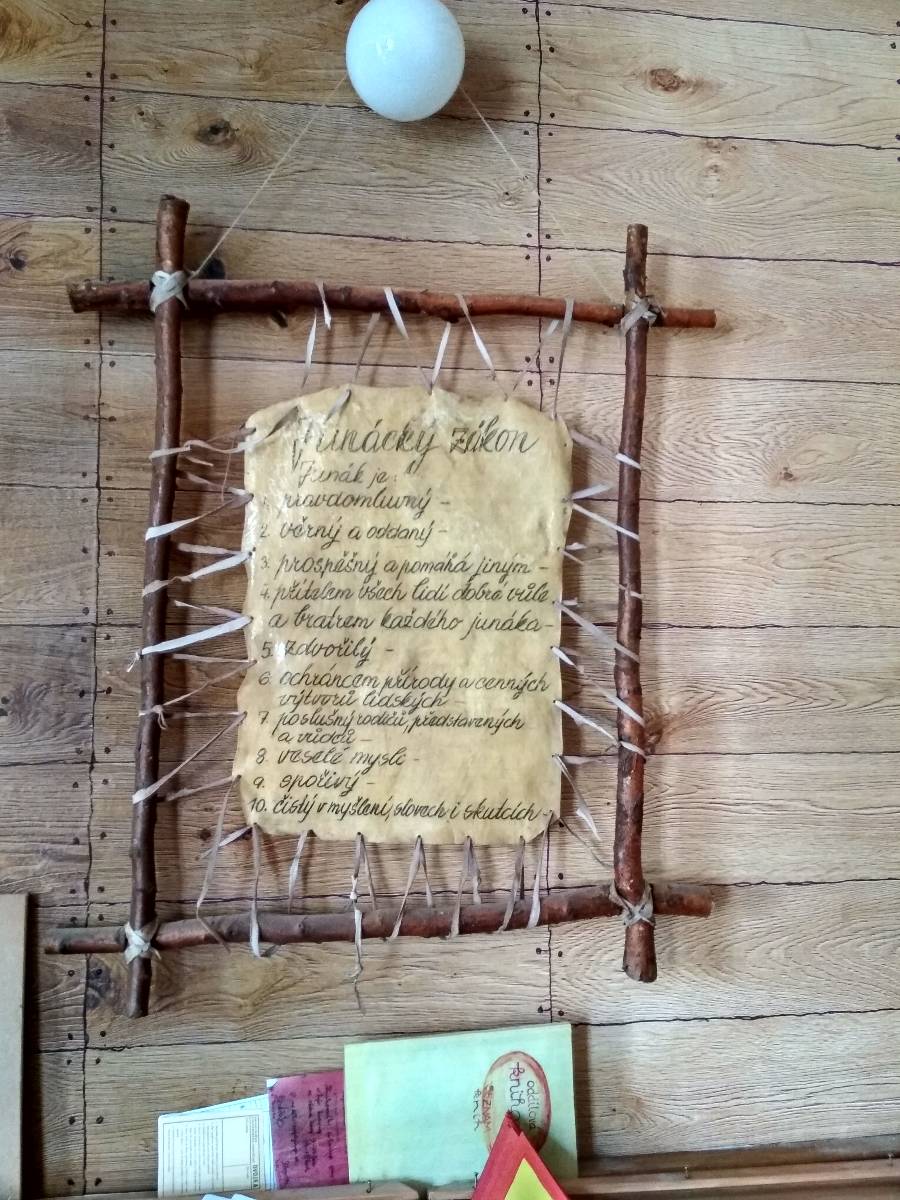 Junácký zákon
Junák je:
1. pravdomluvný -
2. věrný a oddaný -
3. prospěšný a pomáhá jiným -
4. přítelem všech lidí dobré vůle
a bratrem každého junáka -
5. zdvořilý -
6. ochráncem přírody a cenných
výtvorů lidských -
7. poslušný rodičů, představených
a vůdců -
8. veselé mysli -
9. spořivý -
10. čistý v myšlení, slovech i skutcích -
oddílová
kniha
SEZNAM
knih